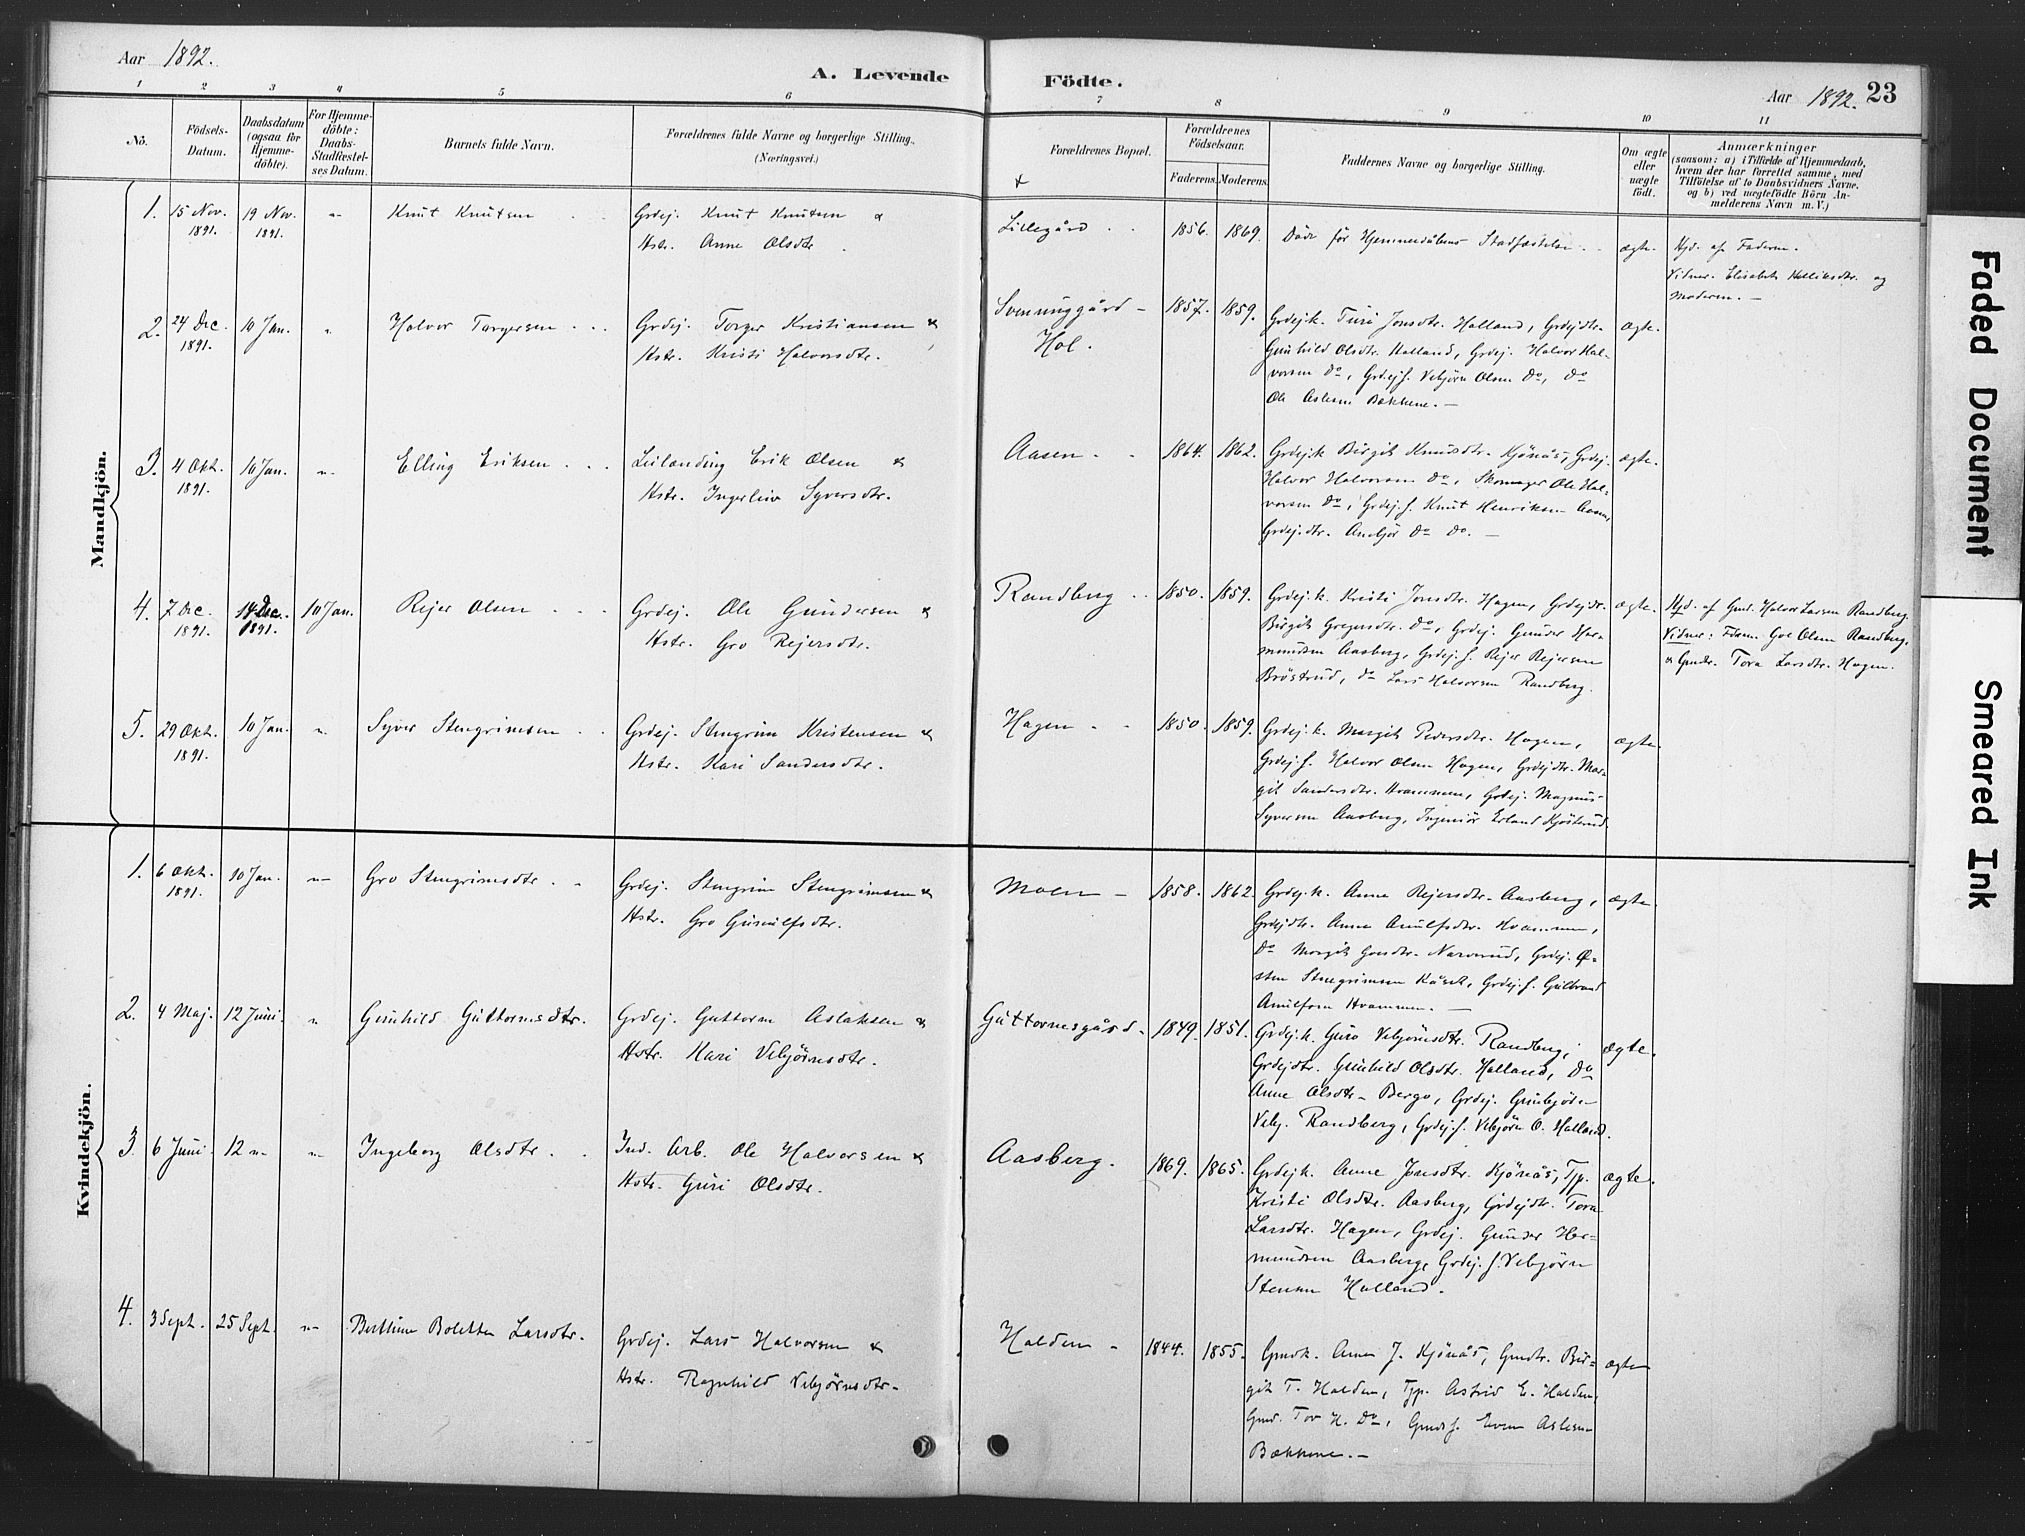 Aar 1892.
A. Levende
Födte.
Aar 1892. 23
1 2 3 4 5 6 7 8 9 10 11
No.
Födsels-
Datum.
Daabsdatum
(ogsaa for
Hjemme-
döbte).
For Hjemme-
döbte:
Daabs-
Stadfæstel-
ses Datum.
Barnets fulde Navn.
Forældrenes fulde Navne og borgerlige Stilling.
(Næringsvei.)
Forældrenes Bopæl.
Forældrenes
Födselsaar.
Faderens. Moderens.
Faddernes Navne og borgerlige Stilling.
Om ægte
eller
uægte
födt.
Anmærkninger
(saasom: a) i Tilfælde af Hjemmedaab,
hvem der har forrettet samme, med
Tilföielse af to Daabsvidners Navne,
og b) ved uægtefödte Börn An-
melderens Navn m. V.)
Mandkjön.
1. 15 Nov. 1891. 19 Nov. 1891. " Knut Knutsen
Grdej. Knut Knutsen &
Hstr. Anne Olsdtr.
Lillegård 1856. 1869. Døde før Hjemmedåbens Stadfæstelse. ægte.
Hjd. af Faderen.
Vidner. Elisabet dtr. og
Moderen. —
2. 24 Dec. 1891. 10 Jan. " Halvor Torgersen
Grdej. Torger Kristiansen &
Hstr. Kristi Halvorsdtr.
Svenunggård —
Hol.
1857. 1859.
Grdejk. Turi Jonsdtr. Halland, Grdejdtr.
Gunhild Olsdtr. Halland, Grdej. Halvor Hal-
vorsen Do, Grdejs. Vebjörn Olsen Do, Do
Ole Aslesen Bækkene. —
ægte.
3. 4 Okt. 1891. 10 Jan. " Elling Eriksen
Leilænding Erik Olsen &
Hstr. Ingerleiv Syversdtr.
Aasen 1864. 1862.
Grdejk. Birgit Knutsdtr. Kjönås, Grdej.
Halvor Halvorsen Do, Skomager Ole Hal-
vorsen Do, Grdej.s. Knut Henriksen Aasen,
Grdej.dtr. Do Do. —
ægte.
4. 7 Dec. 1891. 14 Dec. 1891. 10 Jan. Rejer Olsen
Grdej. Ole Gundersen &
Hstr. Gro Rejersdtr.
Randberg 1850. 1859.
Grdej.k. Kristi Jonsdtr. Hagen, Grdejdtr.
Birgit Gregersdtr. Do, Grdej. Gunder Her-
mundsen Aasberg, Grdej.s. Rejer Rejersen
Bröstrud, Do Lars Halvorsen Randberg.
ægte.
Hjd. af Gmd. Halvor Larsen Randberg.
Vidner: Olsen Randberg,
& Gmdtr. Tora Larsdtr. Hagen.
5. 29 Okt. 1891. 10 Jan. " Syver Stengrimsen
Grdej. Stengrim Kristensen &
Hstr. Kari Sandersdtr.
Hagen 1850. 1859.
Grdej.k. Margit Pedersdtr. Hagen,
Grdej.s. Halvor Olsen Hagen, Grdejdtr. Mar-
git Sandersdtr. Hvammen, Grdej. Magnus
Syversen Aasberg, Ingeniör Erland Kjöstrud.
ægte.
Kvindekjön.
1. 6 Okt. 1891. 10 Jan. " Gro Stengrimsdtr.
Grdej. Stengrim Stengrimsen &
Hstr. Gro Gunulfsdtr.
Moen — 1858. 1862.
Grdej.k. Anne Rejersdtr. Aasberg,
Grdejdtr. Anne Arnulfsdtr. Hvammen,
Do Margit dtr. Narverud, Grdej. Ö-
sten Stengrimsen, Grdej.s. Gulbrand
Arnulfsen Hvammen. —
ægte.
2. 4 Maj. 12 Juni. " Gunhild Guttormsdtr.
Grdej. Guttorm Aslaksen &
Hstr. Kari Vebjörnsdtr.
Guttormsgård. 1849. 1851.
Grdej.k. Guro Vebjörnsdtr. Randberg,
Grdejdtr. Gunhild Olsdtr. Halland, Do
Anne Olsdtr. Bergo, Grdej. Gunbjörn
Vebj. Randberg, Grdej.s. Vebjörn O. Halland.
ægte.
3. 6 Juni 12 " " Ingeborg Olsdtr.
Ind. Arb. Ole Halvorsen &
Hstr. Guri Olsdtr.
Aasberg. 1869. 1865.
Grdejk. Anne Jonsdtr. Kjönås, Tjp.
Kristi Olsdtr. Aasberg, Grdejdtr. Tora
Larsdtr. Hagen, Grdej. Gunder Her-
mundsen Aasberg, Grdej.s. Vebjörn
Stensen Halland.
ægte.
4. 3 Sept. 25 Sept. " Berthine Bolette Larsdtr.
Grdej. Lars Halvorsen &
Hstr. Ragnhild Vebjörnsdtr.
Halden 1844. 1855.
Gmdk. Anne J. Kjönås, Gmdtr. Bir-
git T. Halden, Tjp. Astrid E. Halden,
Gmd. Tov H. Do, Gmds. Even Aslesen
Bækkene. —
ægte
Faded Document
Smeared Ink